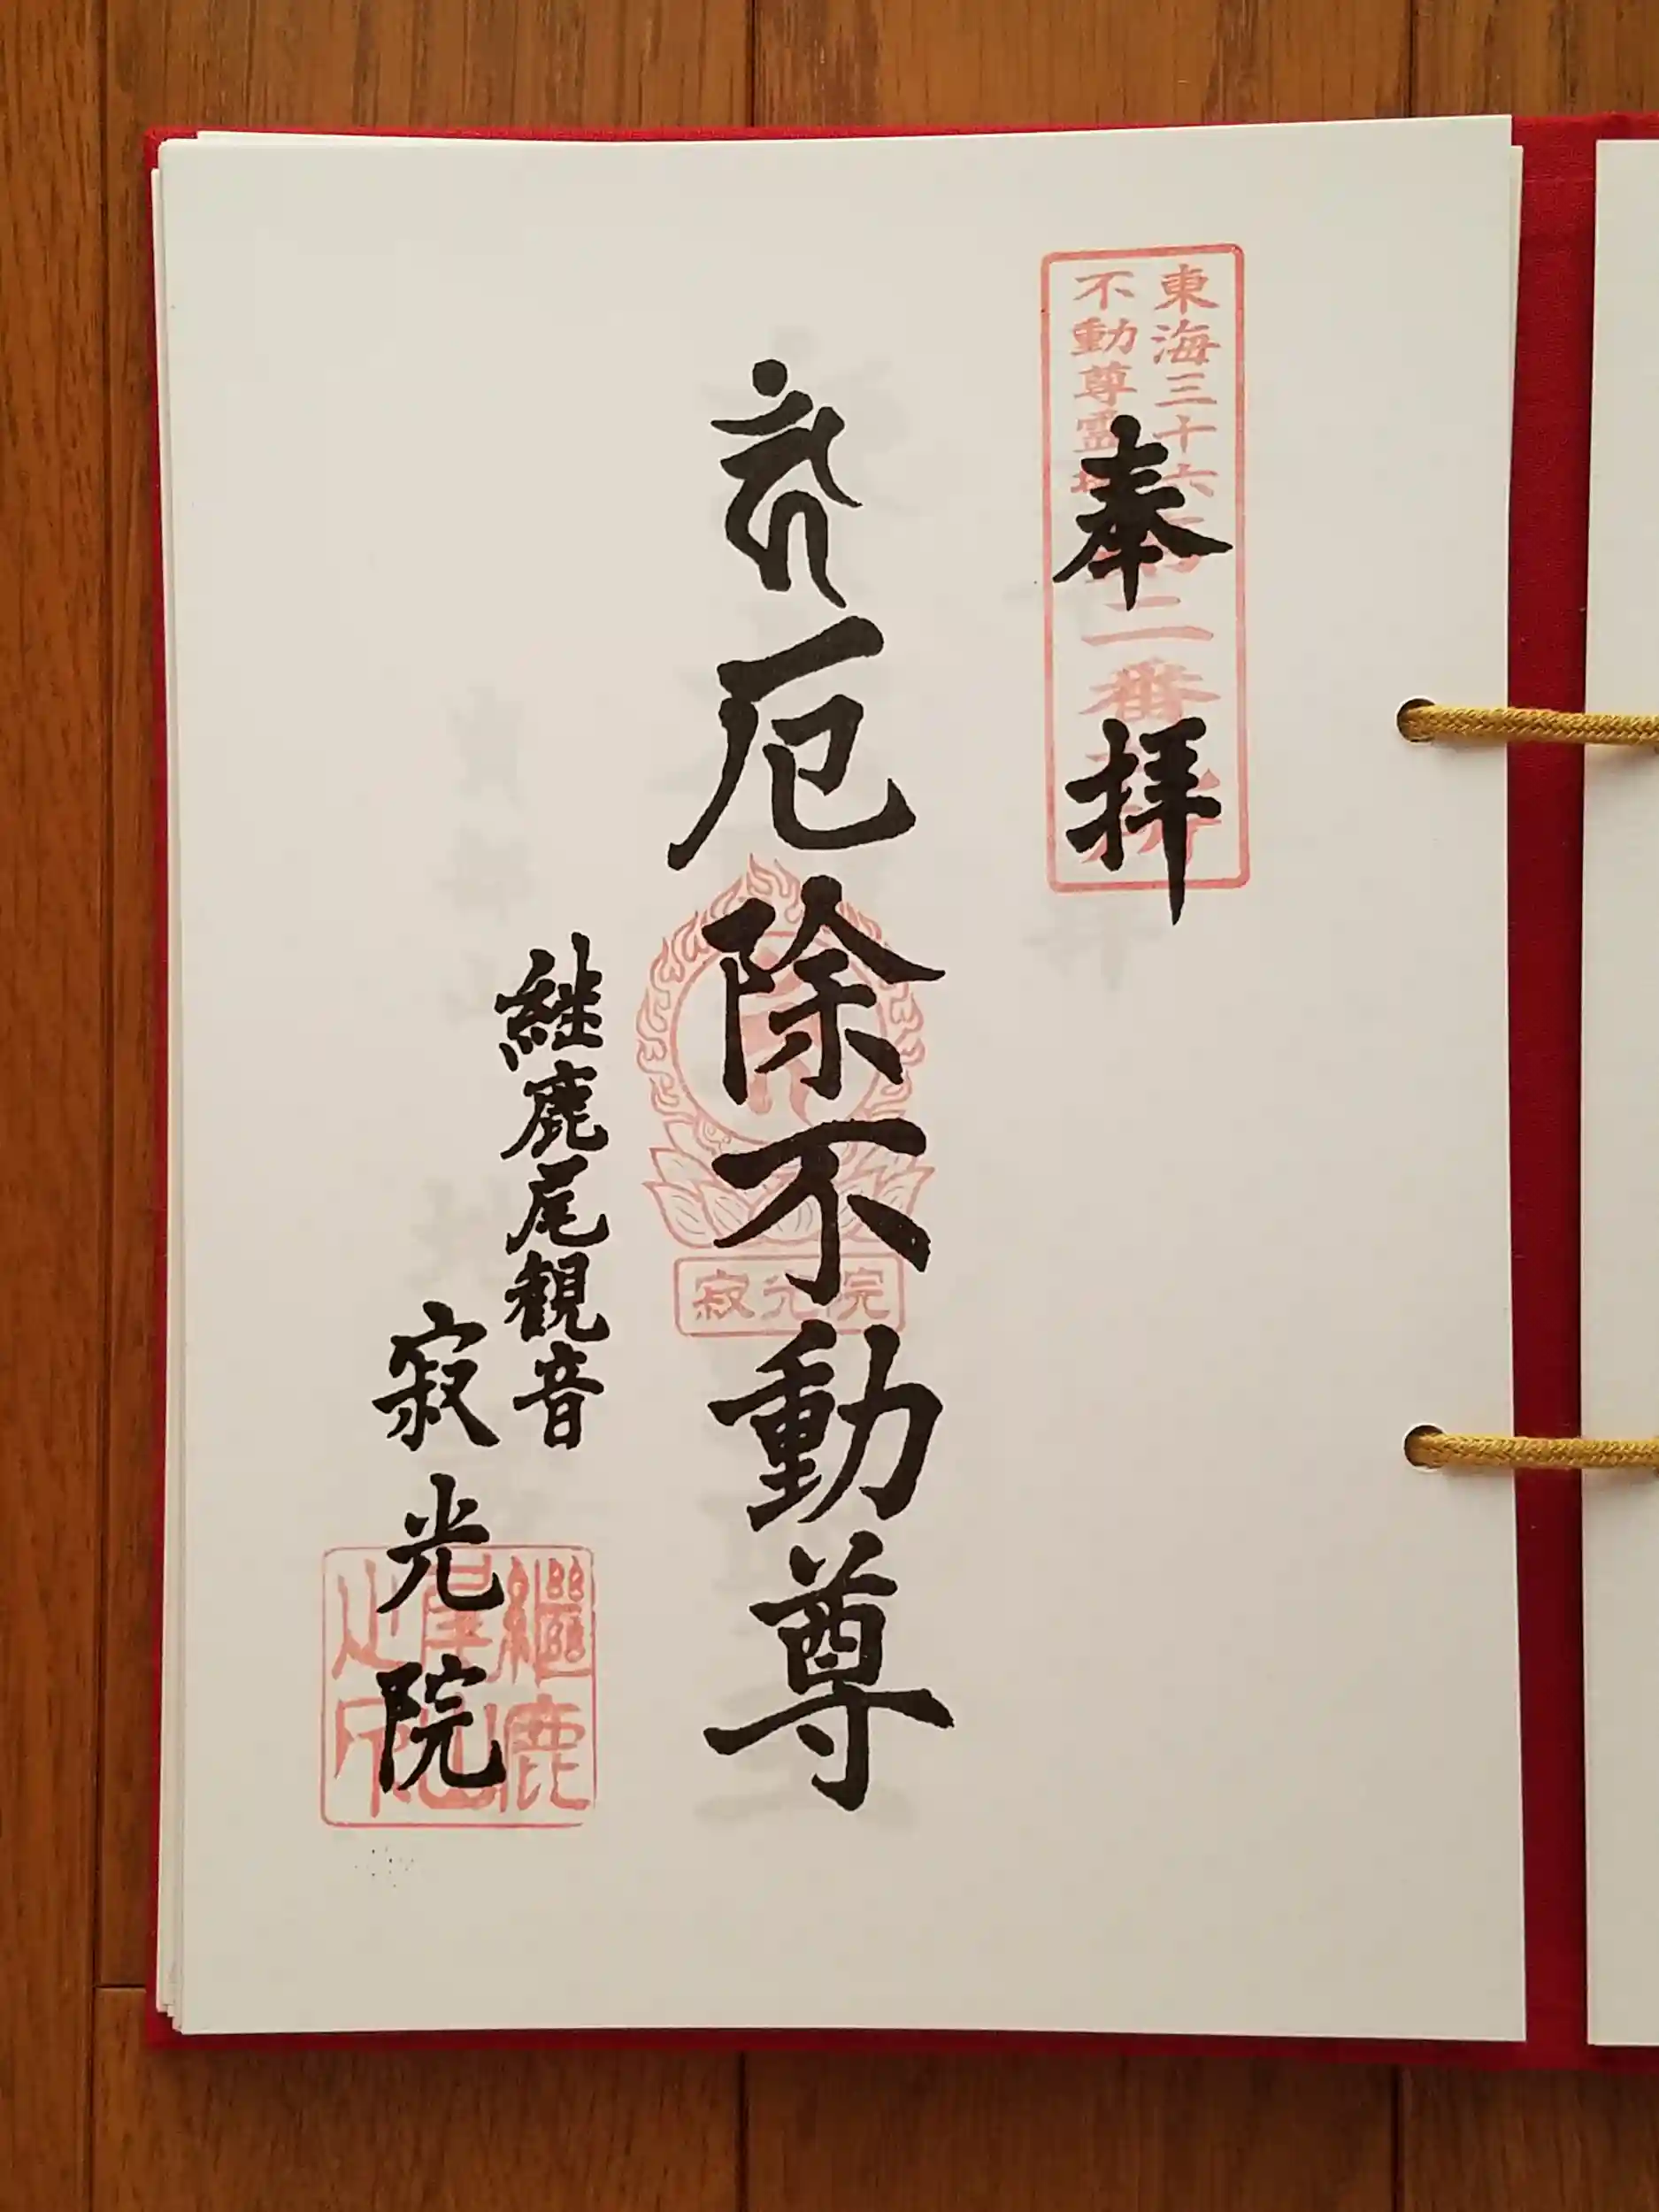 東海三十六
不動尊霊場
第二番札所
奉拝
厄除不動尊
寂光院
継鹿尾観音
寂光院
継鹿尾山